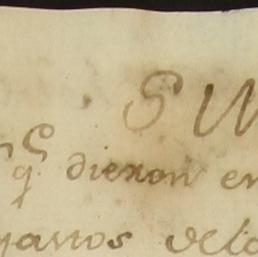 S M
q̃ dieron en
gastos dela